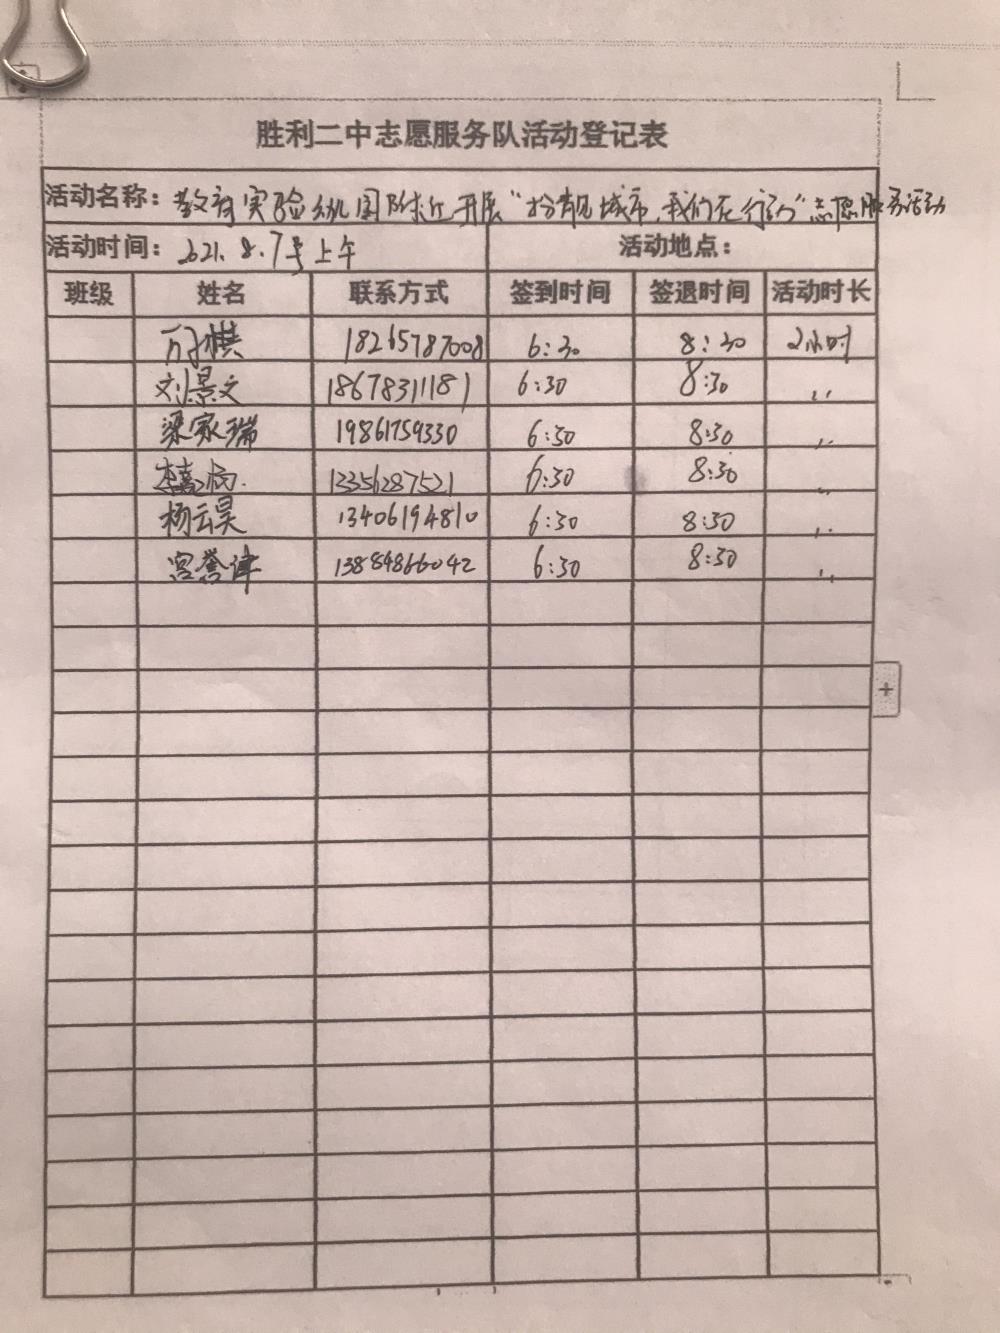 胜利二中志愿服务队活动登记表
活动名称：教育实验幼儿园附近开展“扮靓城市，我们在行动”志愿服务活动
活动时间：2021.8.7号上午 活动地点：
班级 姓名 联系方式 签到时间 签退时间 活动时长
18265787008 6:30 8:30 2小时
刘景文 18678311181 6:30 8:30 ,,
梁家瑞 19861759330 6:30 8:30 ,,
李嘉杨 13356287521 6:30 8:30 ,,
杨云昊 13406194810 6:30 8:30 ,,
宫誉津 13884866042 6:30 8:30 ,,